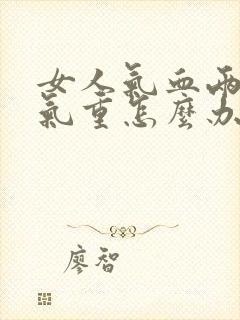 女人氣血兩
氣重怎麼办
廖智